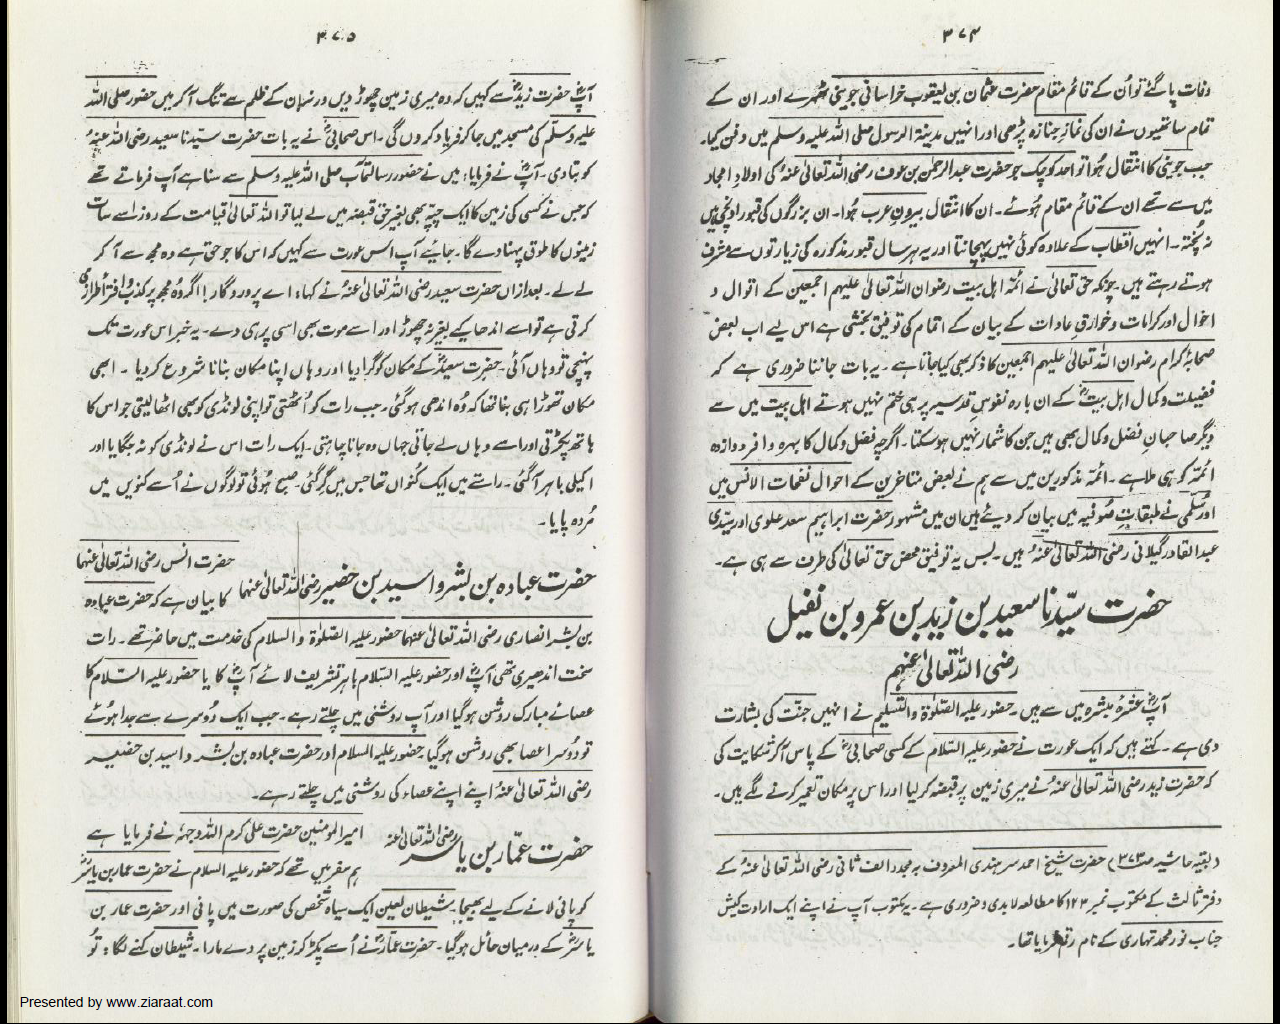 ۳۷۴
وفات پا گئے تو اُن کے قائم مقام حضرت عثمان بن یعقوب خراسانی جوینی ٹھہرے اور ان کے
تمام ساتھیوں نے ان کی نمازِ جنازہ پڑھی اور انہیں مدینۃ الرسول صلی اللہ علیہ وسلم میں دفن کیا۔
جب جوینی کا انتقال ہُوا تو احمد کوچک جو حضرت عبدالرحمٰن بن عوف رضی اللہ تعالیٰ عنہُ کی اولادِ امجاد
میں سے تھے ان کے قائم مقام ہُوئے۔ ان کا انتقال بیرونِ عرب ہُوا۔ ان بزرگوں کی قبور اونچی ہیں
نہ پُختہ۔ انہیں اقطاب کے علاوہ کوئی نہیں پہچانتا اور یہ ہر سال قبور مذکورہ کی زیارتوں سے مشرف
ہوتے رہتے ہیں۔ چونکہ حق تعالیٰ نے ائمّہ اہل بیت رضوان اللہ تعالیٰ علیہم اجمعین کے اقوال و
احوال اور کرامات و خوارقِ عادات کے بیان کے اتمام کی توفیق بخشی ہے اس لیے اب بعض
صحابہؓ کرام رضوان اللہ تعالیٰ علیہم اجمعین کا ذکر بھی کیا جاتا ہے۔ یہ بات جاننا ضروری ہے کہ
فضیلت و کمال اہل بیتؓ کے ان بارہ نفوسِ قدسیہ پر ہی ختم نہیں ہوتے اہل بیت میں سے
دیگر صاحبانِ فضل و کمال بھی ہیں جن کا شمار نہیں ہو سکتا۔ اگرچہ فضل و کمال کا بہرہ وافر دوازدہ
ائمّہ کو ہی ملا ہے۔ ائمّہ مذکورین میں سے ہم نے بعض متاخرین کے احوال نفحات الانس میں
اور سُلمی نے طبقاتِ صُوفیہ میں بیان کر دیے ہیں ان میں مشہور حضرت ابراہیم سعد علوی اور سیّدی
عبدالقادر گیلانی رضی اللہ تعالیٰ عنہُ ہیں۔ بس یہ توفیق محض حق تعالیٰ کی طرف سے ہی ہے۔
حضرت سیّدنا سعید بن زید بن عمرو بن نفیل
رضی اللہ تعالیٰ عنہم
آپؓ عشرۂ مبشرہ میں سے ہیں۔ حضور علیہ الصلوٰۃ والتسلیم نے انہیں جنّت کی بشارت
دی ہے۔ کہتے ہیں کہ ایک عورت نے حضور علیہ السّلام کے کسی صحابیؓ کے پاس آکر شکایت کی
کہ حضرت زید رضی اللہ تعالیٰ عنہُ نے میری زمین پر قبضہ کر لیا اور اس پر مکان تعمیر کرنے لگے ہیں۔
(بقیہ حاشیہ صہ ۳۷۳) حضرت شیخ احمد سرہندی المعروف بہ مجدد الف ثانی رضی اللہ تعالیٰ عنہُ کے
دفتر ثالث کے مکتوب نمبر ۱۲۳ کا مطالعہ لابدی و ضروری ہے۔ یہ مکتوب آپ نے اپنے ایک ارادت کیش
جناب نور محمد تہاری کے نام رقم فرمایا تھا۔
۳۷۵
آپؓ حضرت زیدؓ سے کہیں کہ وہ میری زمین چھوڑ دیں ورنہ ان کے ظلم سے تنگ آکر میں حضور صلی اللہ
علیہ وسلّم کی مسجد میں جاکر فریاد کروں گی۔ اس صحابیؓ نے یہ بات حضرت سیّدنا سعید رضی اللہ عنہُ
کو بتا دی۔ آپؓ نے فرمایا: میں نے حضور رسالتمآب صلی اللہ علیہ وسلم سے سُنا ہے آپ فرماتے تھے
کہ جس نے کسی کی زمین کا ایک چپّہ بھی بغیر حق قبضہ میں لے لیا تو اللہ تعالیٰ قیامت کے روز اسے سات
زمینوں کا طوق پہنا دے گا۔ جائیے آپ اس عورت سے کہیں کہ اس کا جو حق ہے وہ مجھ سے آکر
لے لے۔ بعد ازاں حضرت سعید رضی اللہ تعالیٰ عنہُ نے کہا: اے پروردگار! اگر وُہ مجھ پر کذب و افترا طرازی
کرتی ہے تو اسے اندھا کیے بغیر نہ چھوڑ اور اسے موت بھی اسی پر ہی دے۔ یہ خبر اس عورت تک
پہنچی تو وہاں آئی۔ حضرت سعیدؓ کے مکان کو گرا دیا اور وہاں اپنا مکان بنانا شروع کر دیا۔ ابھی
مکان تھوڑا ہی بنا تھا کہ وُہ اندھی ہو گئی۔ جب رات کو اُٹھتی تو اپنی لونڈی کو بھی اٹھا لیتی جو اس کا
ہاتھ پکڑتی اور اسے وہاں لے جاتی جہاں وہ جانا چاہتی۔ ایک رات اس نے لونڈی کو نہ جگایا اور
اکیلی باہر آ گئی۔ راستے میں ایک کُنواں تھا جس میں گر گئی۔ صبح ہُوئی تو لوگوں نے اُسے کنویں میں
مُردہ پایا۔
حضرت عبادہ بن بشر و اسید بن حضیر رضی اللہ تعالیٰ عنہما
حضرت انس رضی اللہ تعالیٰ عنہما
کا بیان ہے کہ حضرت عبادہ
بن بشر انصاری رضی اللہ تعالیٰ عنہما حضور علیہ الصّلوٰۃ والسلام کی خدمت میں حاضر تھے۔ رات
سخت اندھیری تھی آپؓ اور حضور علیہ السّلام باہر تشریف لائے آپؓ کا یا حضور علیہ السّلام کا
عصائے مبارک روشن ہو گیا اور آپ روشنی میں چلتے رہے۔ جب ایک دُوسرے سے جدا ہُوئے
تو دُوسرا عصا بھی روشن ہو گیا۔ حضور علیہ السلام اور حضرت عبادہ بن بشر و اسید بن حضیر
رضی اللہ تعالیٰ عنہُ اپنے اپنے عصاء کی روشنی میں چلتے رہے۔
حضرت عمّار بن یاسر رضی اللہ تعالیٰ عنہ
امیر المومنین حضرت علی کرم اللہ وجہہٗ نے فرمایا ہے
ہم سفر میں تھے کہ حضور علیہ السلام نے حضرت عمار بن یاسرؓ
کو پانی لانے کے لیے بھیجا۔ شیطان لعین ایک سیاہ شخص کی صورت میں پانی اور حضرت عمار بن
یاسرؓ کے درمیان حائل ہو گیا۔ حضرت عمّارؓ نے اُسے پکڑ کر زمین پر دے مارا۔ شیطان کہنے لگا: تُو
Presented by www.ziaraat.com